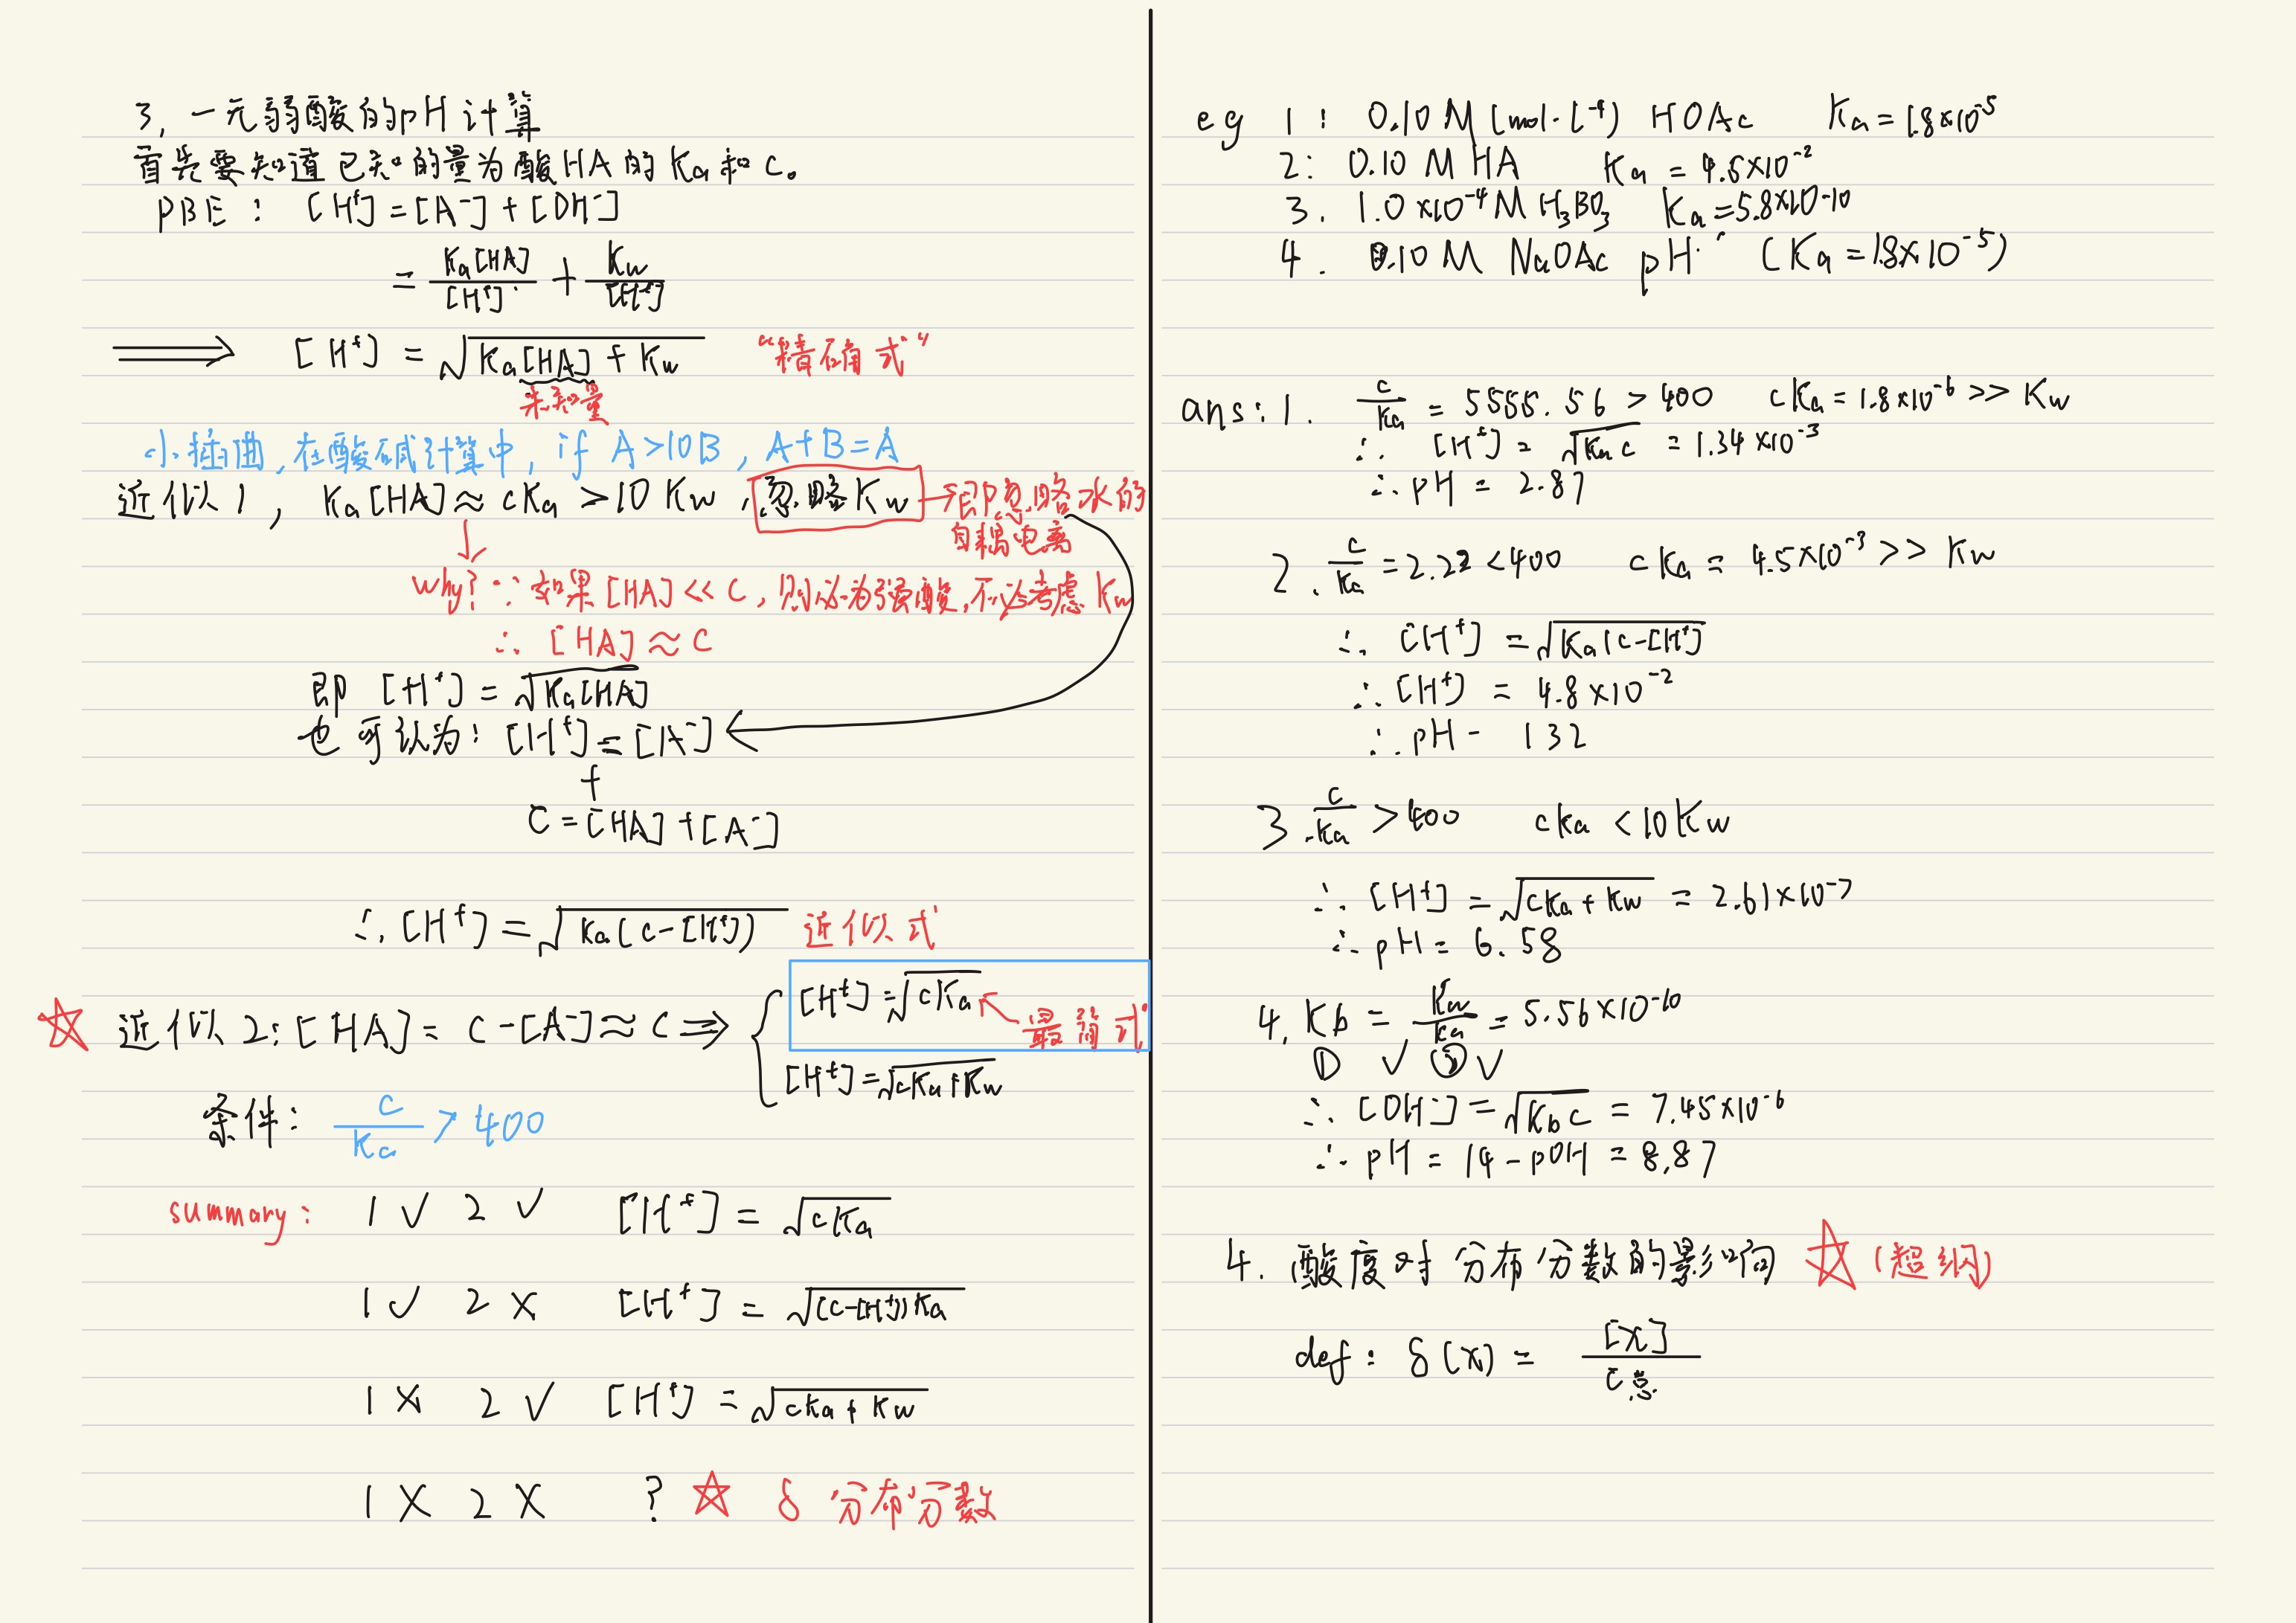 3, 一元弱酸的pH计算
首先要知道已知的量为酸HA的Ka和c。
PBE: [H⁺]=[A⁻]+[OH⁻]
= Ka[HA]/[H⁺] + Kw/[H⁺]
⟹ [H⁺] = √(Ka[HA]+Kw) “精确式”
未知量
小插曲,在酸碱计算中, if A>10B, A+B=A
近似1, Ka[HA]≈cKa>10Kw,忽略Kw→即忽略水的
自耦电离
↓
why? ∵如果[HA]<<C,则必为强酸,不必考虑Kw
∴ [HA]≈C
即 [H⁺] = √(Ka[HA])
也可认为: [H⁺]=[A⁻]
+
C=[HA]+[A⁻]
∴ [H⁺]=√(Ka(c-[H⁺])) 近似式
☆ 近似2:[HA]= C-[A⁻]≈C⇒ { [H⁺]=√(cKa) ← 最简式
[H⁺]=√(cKa+Kw)
条件: c/Ka > 400
summary: 1 √ 2 √ [H⁺] = √(cKa)
1 √ 2 × [H⁺] = √((c-[H⁺])Ka)
1 × 2 √ [H⁺] = √(cKa+Kw)
1 × 2 × ? ☆ δ 分布分数
eg 1: 0.10 M (mol·L⁻¹) HOAc Ka=1.8×10⁻⁵
2: 0.10 M HA Ka = 4.5×10⁻²
3. 1.0×10⁻⁴M H₃BO₃ Ka=5.8×10⁻¹⁰
4. 0.10 M NaOAc pH (Ka=1.8×10⁻⁵)
ans: 1. c/Ka = 5555.56 > 400 cKa=1.8×10⁻⁶>> Kw
∴ [H⁺] = √(Kac) = 1.34×10⁻³
∴ pH = 2.87
2. c/Ka = 2.22<400 cKa = 4.5×10⁻³>> Kw
∴ [H⁺] =√(Ka(c-[H⁺])
∴ [H⁺] = 4.8×10⁻²
∴ pH - 1 32
3. c/Ka > 400 cka < 10Kw
∴ [H⁺] =√(cka+Kw) = 2.61×10⁻⁷
∴ pH = 6.58
4. Kb = Kw/Ka = 5.56×10⁻¹⁰
① √ ② √
∴ [OH⁻] =√(Kbc) = 7.45×10⁻⁶
∴ pH = 14-pOH = 8.87
4. 酸度对分布分数的影响 ☆ (超纲)
def: δ(x) = [x]/c总